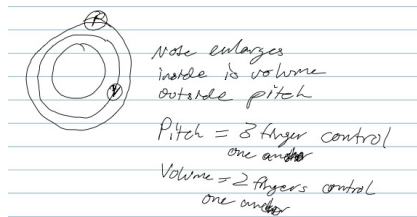 P
V
Note enlarges
inside is volume
outside pitch
Pitch = 3 finger control
one anchor
Volume = 2 fingers control
one anchor